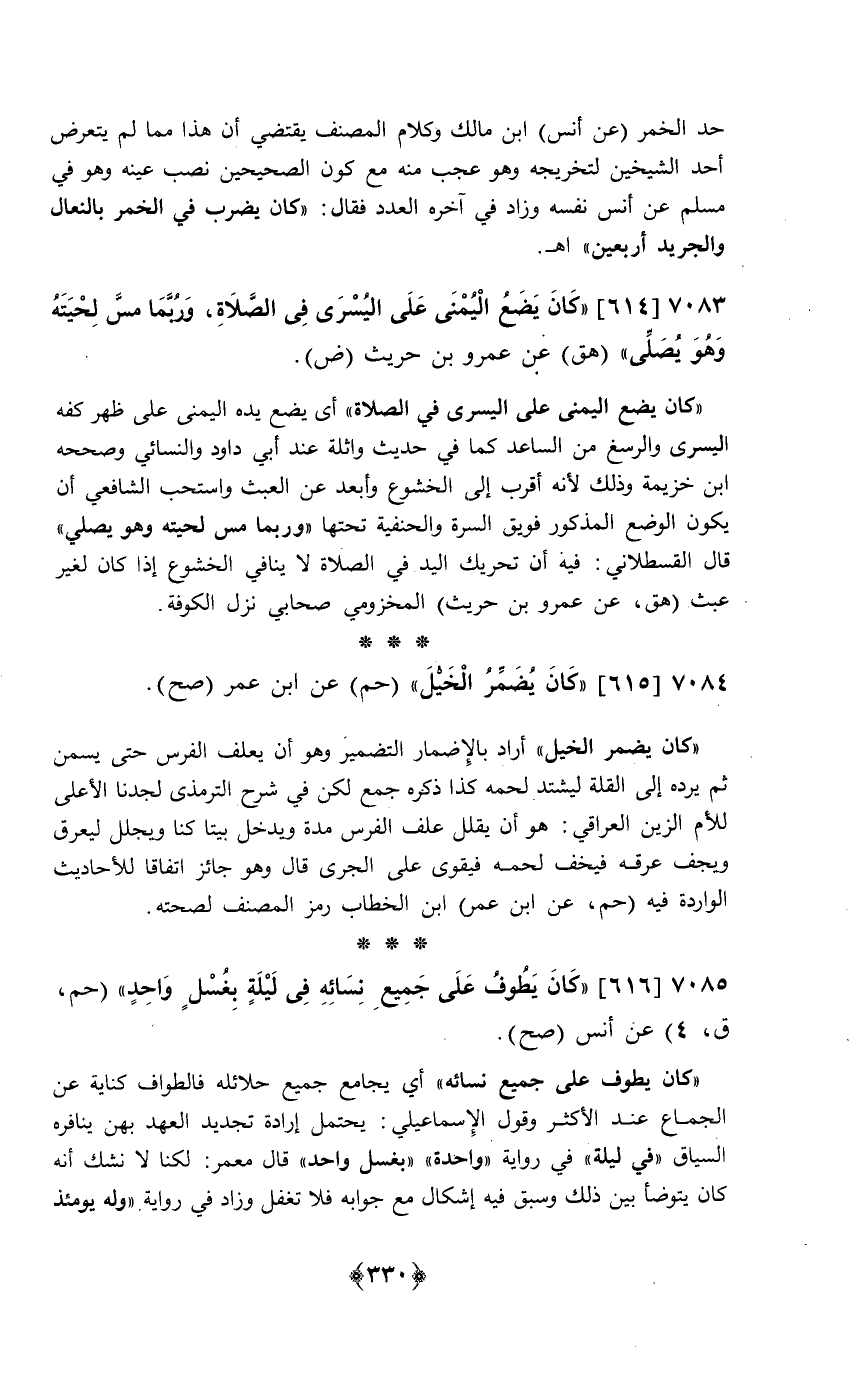 حد الخمر (عن أنس) ابن مالك وكلام المصنف يقتضي أن هذا مما لم يتعرض
أحد الشيخين لتخريجه وهو عجب منه مع كون الصحيحين نصب عينه وهو في
مسلم عن أنس نفسه وزاد في آخره العدد فقال: «كان يضرب في الخمر بالنعال
والجريد أربعين» اهـ.
٧٠٨٣ [٦١٤] «كَانَ يَضَعُ الْيُمْنَى عَلَى اليُسْرَى فِى الصَّلَاةِ، وَرُبَّمَا مسَّ لِحْيَتَهُ
وَهُوَ يُصَلِّى» (هق) عن عمرو بن حريث (ض).
«كان يضع اليمنى على اليسرى في الصلاة» أى يضع يده اليمنى على ظهر كفه
اليسرى والرسغ من الساعد كما في حديث واثلة عند أبي داود والنسائي وصححه
ابن خزيمة وذلك لأنه أقرب إلى الخشوع وأبعد عن العبث واستحب الشافعي أن
يكون الوضع المذكور فويق السرة والحنفية تحتها «وربما مس لحيته وهو يصلي»
قال القسطلاني: فيه أن تحريك اليد في الصلاة لا ينافي الخشوع إذا كان لغير
عبث (هق، عن عمرو بن حريث) المخزومي صحابي نزل الكوفة.
* * *
٧٠٨٤ [٦١٥] «كَانَ يُضَمِّرُ الْخَيْلَ» (حم) عن ابن عمر (صح).
«كان يضمر الخيل» أراد بالإضمار التضمير وهو أن يعلف الفرس حتى يسمن
ثم يرده إلى القلة ليشتد لحمه كذا ذكره جمع لكن في شرح الترمذى لجدنا الأعلى
للأم الزين العراقي: هو أن يقلل علف الفرس مدة ويدخل بيتا كنا ويجلل ليعرق
ويجف عرقه فيخف لحمه فيقوى على الجرى قال وهو جائز اتفاقا للأحاديث
الواردة فيه (حم، عن ابن عمر) ابن الخطاب رمز المصنف لصحته.
* * *
٧٠٨٥ [٦١٦] «كَانَ يَطُوفُ عَلَى جَمِيعِ نِسَائِهِ فِى لَيْلَةٍ بِغُسْلٍ وَاحِدٍ» (حم،
ق، ٤) عن أنس (صح).
«كان يطوف على جميع نسائه» أي يجامع جميع حلائله فالطواف كناية عن
الجماع عند الأكثر وقول الإسماعيلي: يحتمل إرادة تجديد العهد بهن ينافره
السياق «في ليلة» في رواية «واحدة» «بغسل واحد» قال معمر: لكنا لا نشك أنه
كان يتوضأ بين ذلك وسبق فيه إشكال مع جوابه فلا تغفل وزاد في رواية «وله يومئذ
﴿٣٣٠﴾